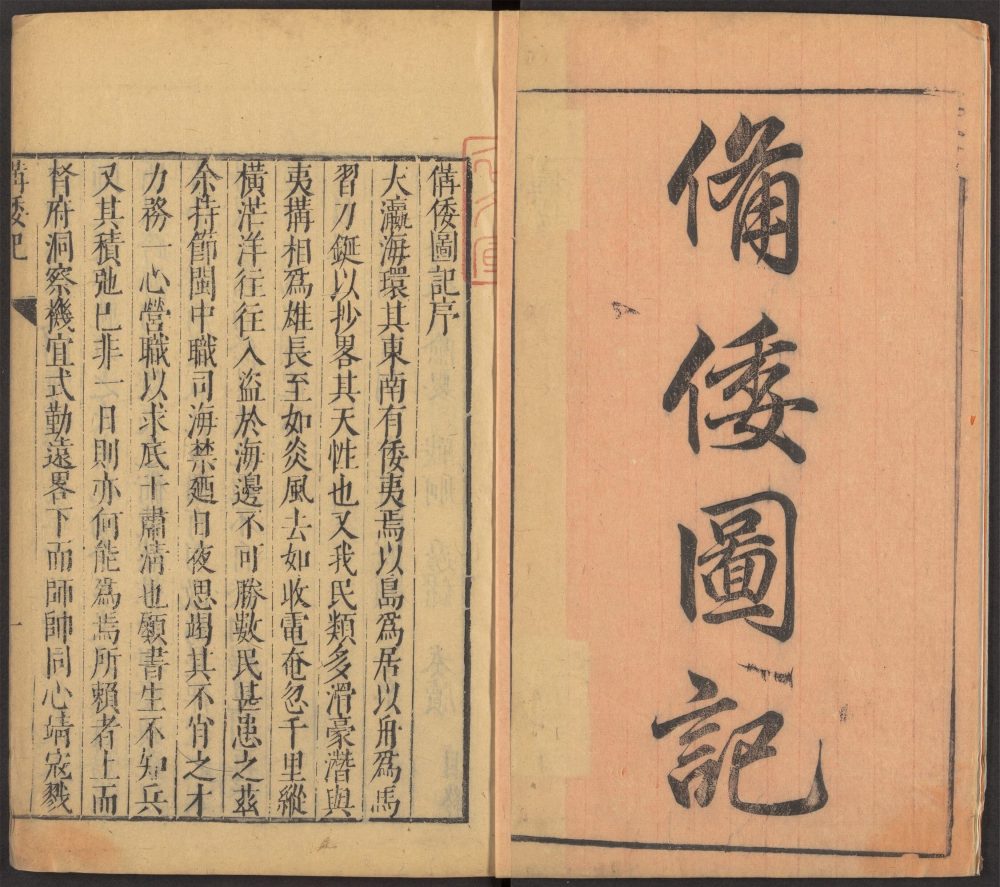 備倭圖記
備倭圖記序
大瀛海環其東南有倭夷焉以島爲居以舟爲馬
習刀鋋以抄畧其天性也又我民類多滑豪潛與
夷搆相爲雄長至如炎風去如收電奄忽千里縱
橫茫洋往往入盜於海邊不可勝數民甚患之茲
余持節閩中職司海禁廼日夜思竭其不肖之才
力務一心營職以求底于肅淸也顧書生不知兵
又其積弛已非一日則亦何能爲焉所賴者上而
督府洞察機宜式勤遠畧下而師帥同心靖寇戮
備倭記
一